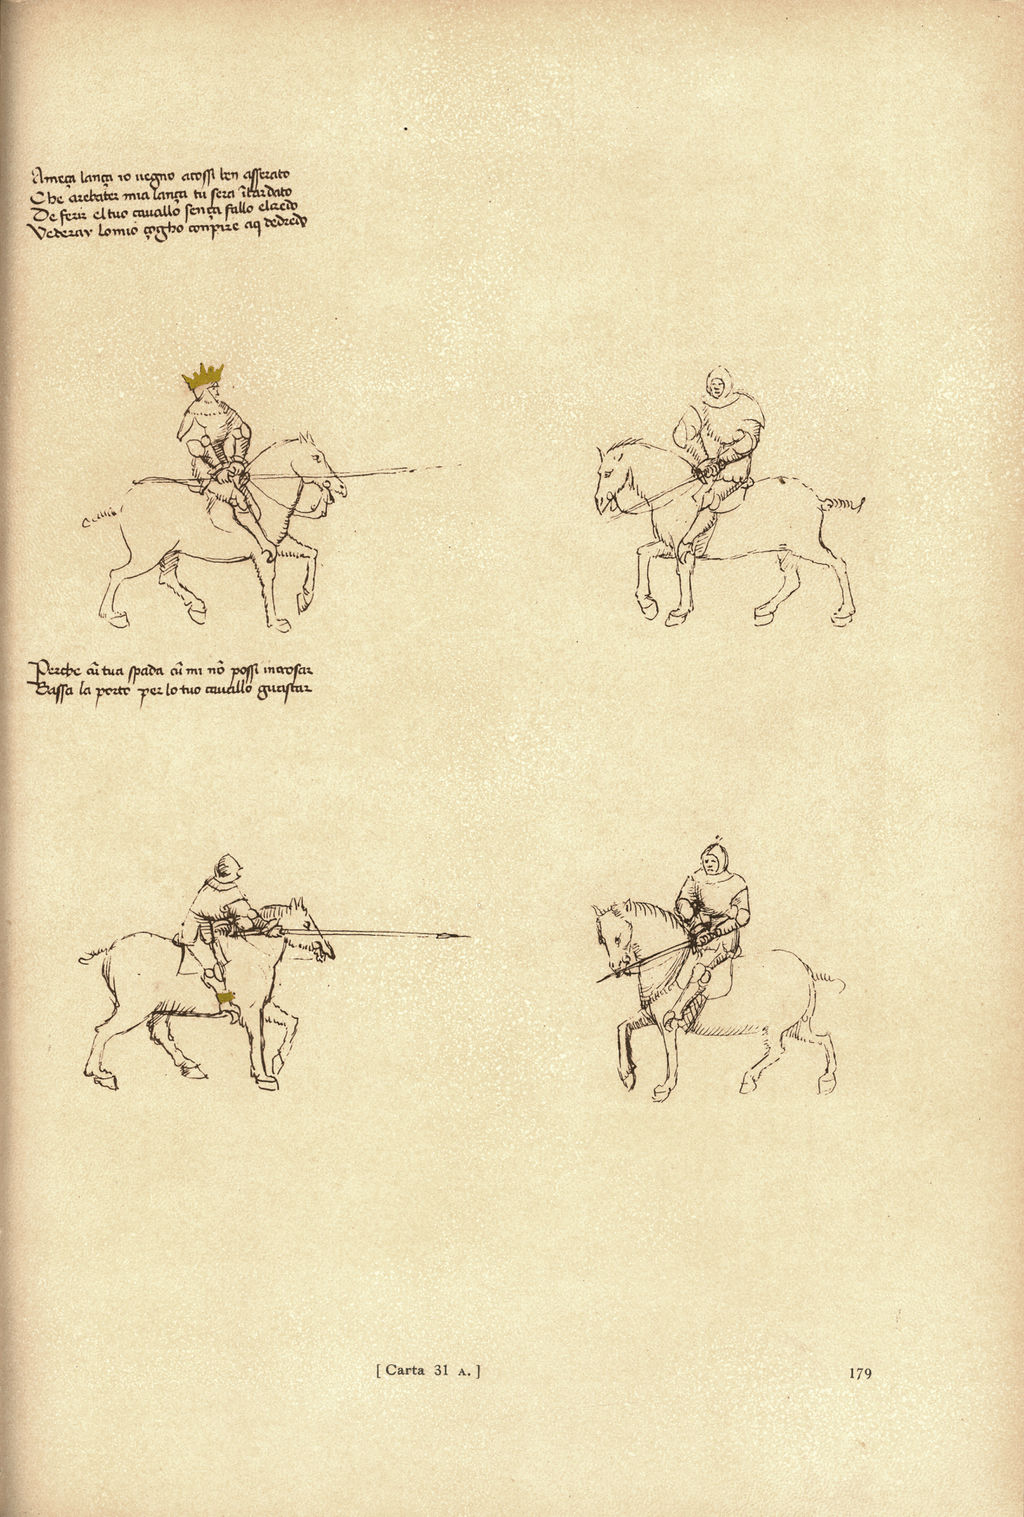 Ameça lança io uegno acossi ben asserato
Che arebater mia lança tu sera ĩbardato
De ferir el tuo cauallo sença fallo el credo
Vederay lo mio çogho conpire aq dedredo
Perche cũ tua spada cũ mi nõ possi incrosar
Bassa la porto per lo tuo cauallo guastar
[Carta 31 A.]
179